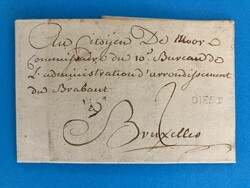 Au Citoyen De Moor
Commissaire du 10.e Bureau de
L'administration d'arrondissement
du Brabant
à
Bruxelles
DIEST